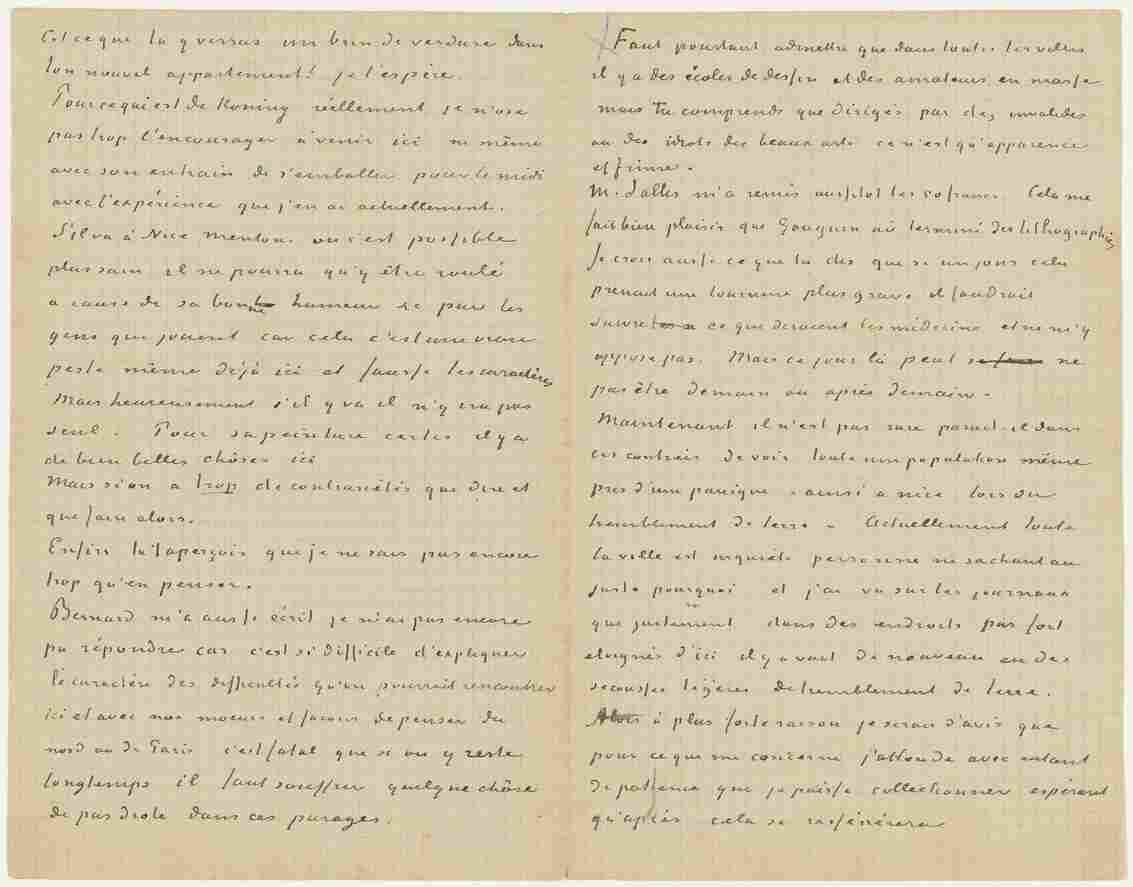 Est ce que tu y verras un brin de verdure dans
ton nouvel appartement? je l'espère.
Pour ce qui est de Koning réellement je n'ose
pas trop l'encourager à venir ici ni même
avec son entrain de s'emballer pour le midi
avec l'expérience que j'en ai actuellement.
S'il va à Nice Menton. où c'est possible
plus sain il ne pourra qu'y être roulé
a cause de sa bonne humeur et par les
gens qui jouent car cela c'est une vraie
peste même déjà ici et fausse les caractères
Mais heureusement s'il y va il n'y ira pas
seul. Pour sa peinture certes il y a
de bien belles choses ici
Mais si on a trop de contrariétés que dire et
que faire alors.
Enfin tu t'aperçois que je ne sais pas encore
trop qu'en penser.
Bernard m'a aussi écrit je n'ai pas encore
pu répondre car c'est si difficile d'expliquer
le caractère des difficultés qu'on pourrait rencontrer
ici et avec nos moeurs et façons de penser du
nord ou de Paris c'est fatal que si on y reste
longtemps il faut souffrir quelque chôse
de pas drole dans ces parages.
Faut pourtant admettre que dans toutes les villes
il y a des écoles de dessin et des amateurs en masse
mais tu comprends que dirigés par des invalides
ou des idiots des beaux arts ce n'est qu'apparence
et frime.
M. Salles m'a remis aussitot les 50 francs. Cela me
fait bien plaisir que Gauguin ait terminé des lithographies
Je crois aussi ce que tu dis que si un jour cela
prenait une tournure plus grave il faudrait
suivre ce que diraient les médecins et ne m'y
oppose pas. Mais ce jour là peut ne
pas être demain ou après demain.
Maintenant il n'est pas rare parait-il dans
ces contrées de voir toute une population même
pris d'une panique. ainsi a nice lors du
tremblement de terre. Actuellement toute
la ville est inquiète personne ne sachant au
juste pourquoi et j'ai vu sur les journaux
que justement dans des endroits pas fort
eloignés d'ici il y avait de nouveau eu des
secousses légères de tremblement de terre.
Alors à plus forte raison je serais d'avis que
pour ce que me concerne j'attende avec autant
de patience que je puisse collectionner espérant
qu'après cela se rassérénera